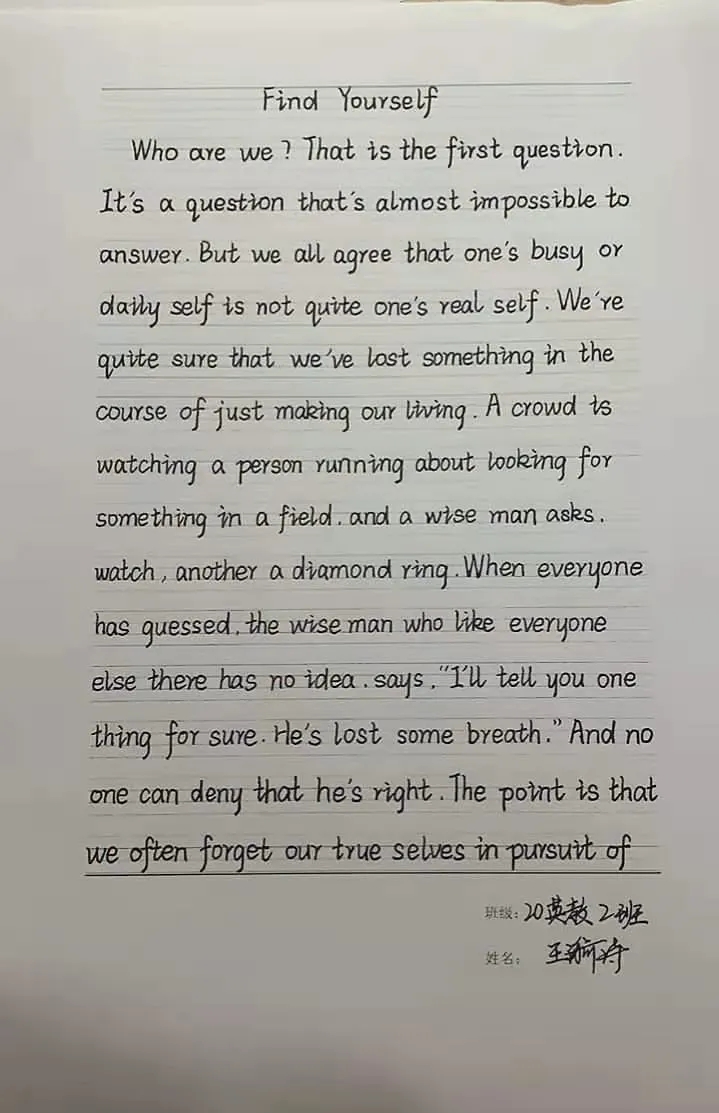 Find Yourself
Who are we? That is the first question.
It's a question that's almost impossible to
answer. But we all agree that one's busy or
daily self is not quite one's real self. We're
quite sure that we've lost something in the
course of just making our living. A crowd is
watching a person running about looking for
something in a field. and a wise man asks.
watch, another a diamond ring. When everyone
has guessed, the wise man who like everyone
else there has no idea. says. "I'll tell you one
thing for sure. He's lost some breath." And no
one can deny that he's right. The point is that
we often forget our true selves in pursuit of
班级: 20英教2班
姓名: 王